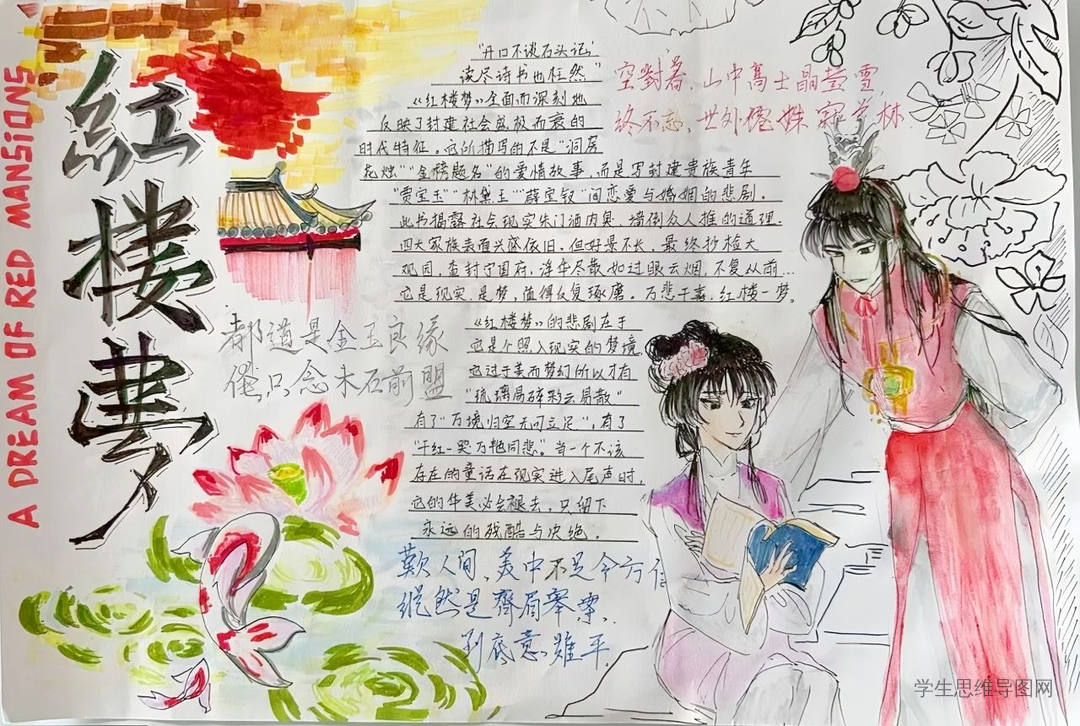 A DREAM OF RED MANSIONS
紅樓夢
"开口不谈石头记"
读尽诗书也枉然"
《红楼梦》全面而深刻地
反映了封建社会盛极而衰的
时代特征。它所描写的不是"洞房
花烛""金榜题名"的爱情故事,而是写封建贵族青年
"贾宝玉""林黛玉""薛宝钗"间恋爱与婚姻的悲剧。
此书揭露社会现实朱门酒肉臭,墙倒众人推的道理
四大家族表面兴盛依旧,但好景不长,最终抄检大
观园,查封宁国府,浮华尽散如过眼云烟,不复从前…
它是现实,是梦,值得反复琢磨。万悲千喜,红楼一梦。
空對着,山中高士晶莹雪,
终不忘,世外仙姝寂寞林.
都道是金玉良缘
俺只念木石前盟
《红楼梦》的悲剧在于
它是个照入现实的梦境
它过于美而梦幻所以才有
"琉璃易碎彩云易散"
有了"万境归空无可立足",有了
"千红一哭万艳同悲"。当一个不该
存在的童话在现实进入尾声时,
它的华美必会褪去,只留下
永远的残酷与决绝。
歎人间,美中不足今方信
縱然是齊眉舉案,
到底意難平.
学生思维导图网